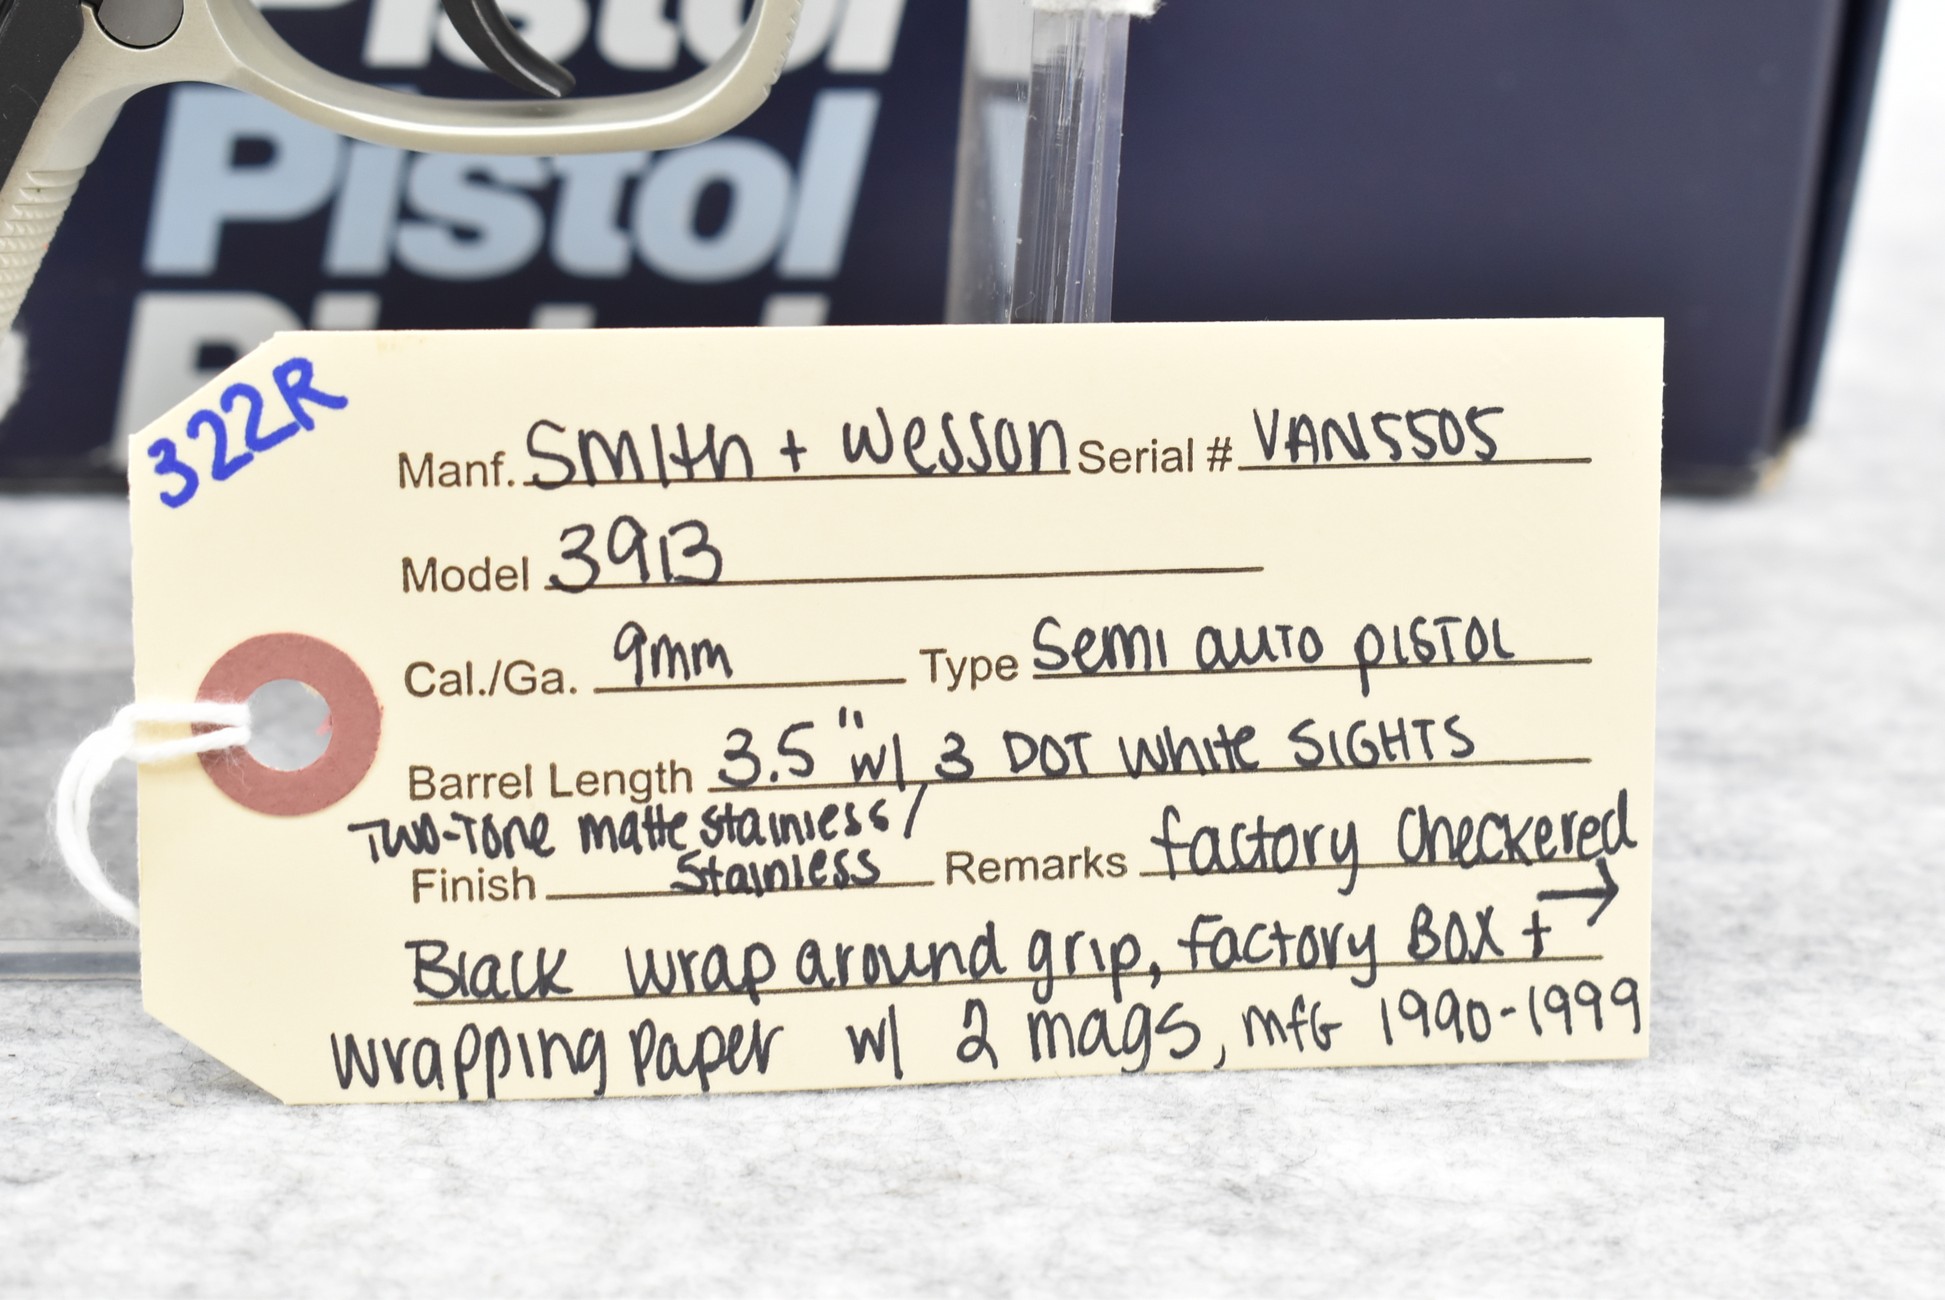 Pistol
Pistol
Pistol
322R
Manf. Smith + Wesson Serial # VAN5505
Model 3913
Cal./Ga. 9mm Type Semi auto PISTOL
Barrel Length 3.5" w/ 3 DOT White SIGHTS
Two-Tone matte stainless/
Finish Stainless Remarks factory checkered
→
Black wrap around grip, factory BOX +
wrapping paper w/ 2 mags, mfG 1990-1999